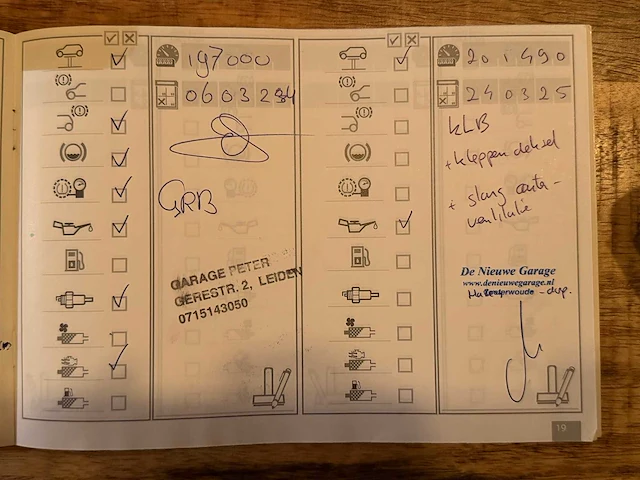 197000
060324
GRB
GARAGE PETER
GERESTR. 2, LEIDEN
0715143050
201490
240325
KLB
+ kleppen deksel
+ slang carter-
ventilatie
De Nieuwe Garage
www.denieuwegarage.nl
19